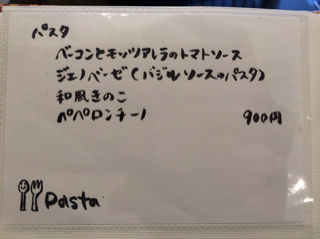 パスタ
ベーコンとモッツアレラのトマトソース
ジェノベーゼ(バジルソースのパスタ)
和風きのこ
ペペロンチーノ 900円
Pasta